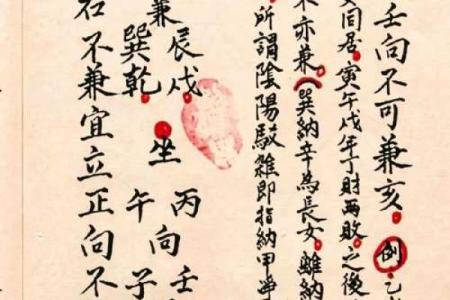 壬向不可兼亥 例乙
間居寅午戌年丁財兩敗之後
不亦兼巽納辛為長女雖納
所謂陰陽駁雜即指納甲爭
丙向壬
坐午向子
兼辰戌
巽乾
不兼宜立正向不